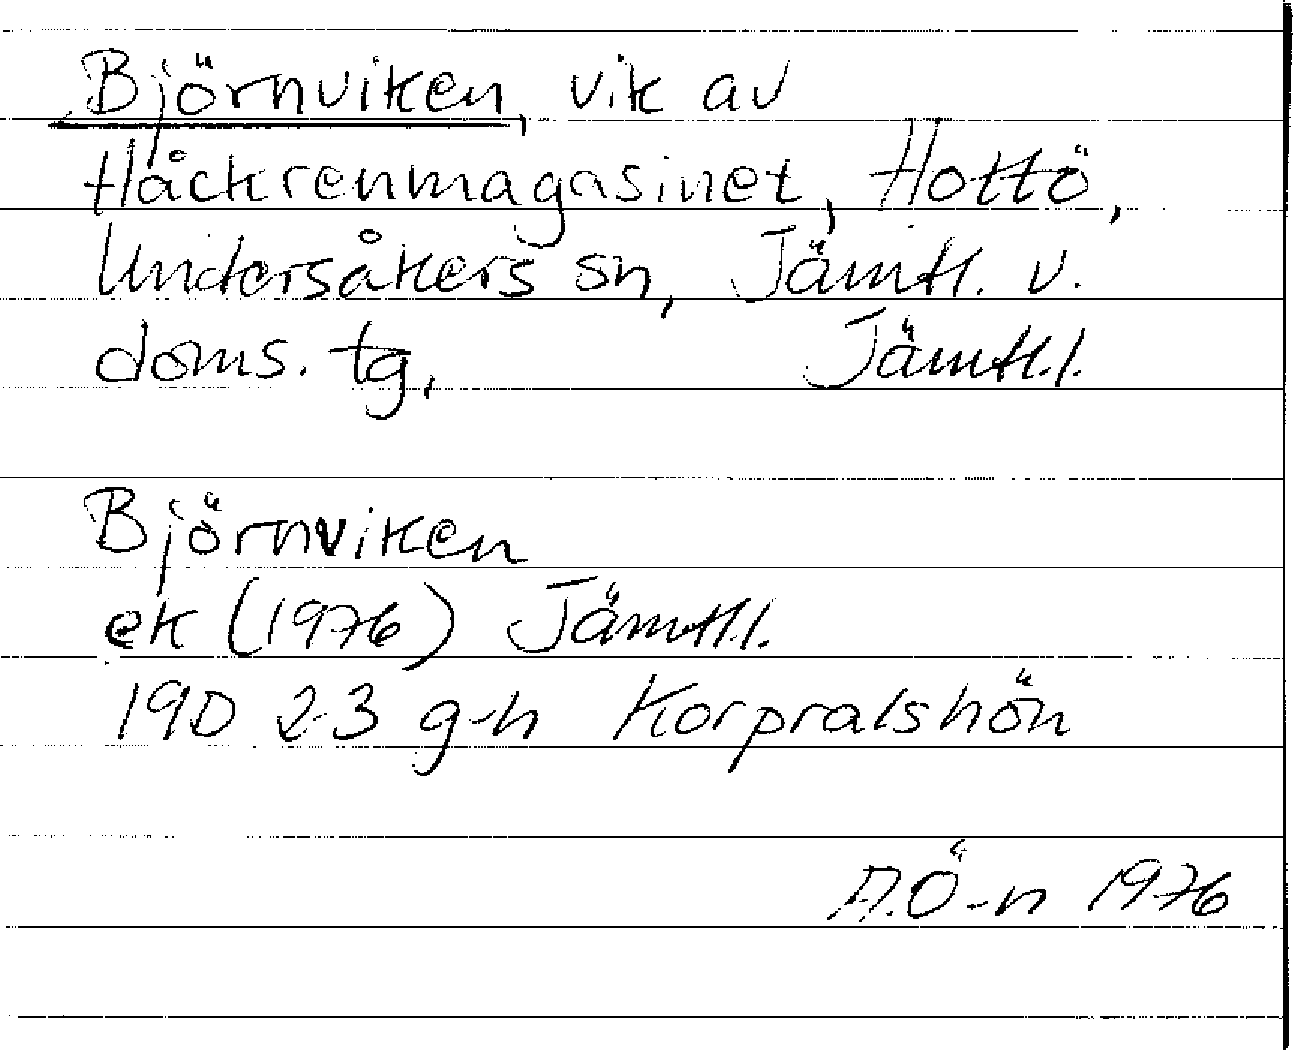 Björnviken, vik av
Håckrenmagasinet, Hottö,
Undersåkers sn, Jämtl. v.
doms. tg, Jämtl.l.
Björnviken
ek (1976) Jämtl.l.
19D 2-3 g-h Korpralshön
A.Ö-n 1976